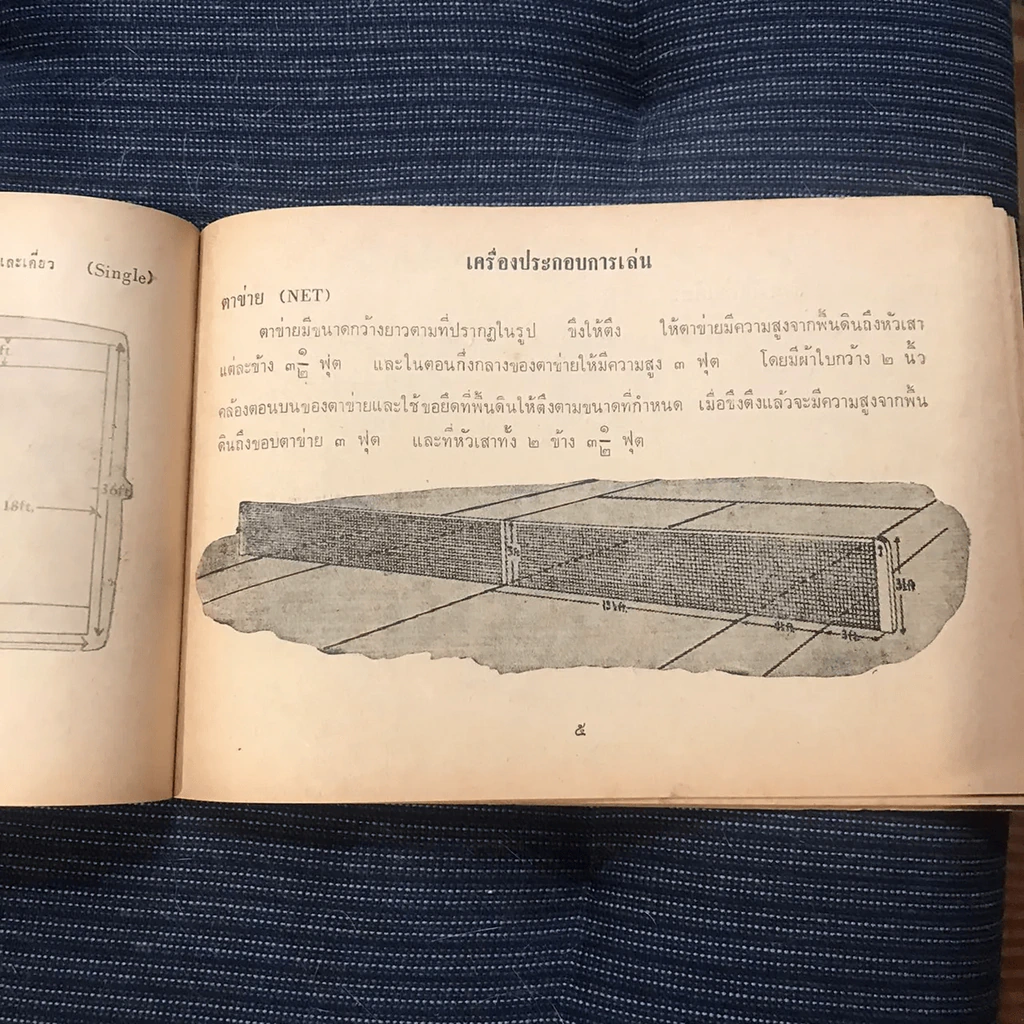 และเดี่ยว (Single)
ft.
36ft.
18ft.
เครื่องประกอบการเล่น
ตาข่าย (NET)
ตาข่ายมีขนาดกว้างยาวตามที่ปรากฏในรูป ขึงให้ตึง ให้ตาข่ายมีความสูงจากพื้นดินถึงหัวเสา
แต่ละข้าง ๓๑/๒ ฟุต และในตอนกึ่งกลางของตาข่ายให้มีความสูง ๓ ฟุต โดยมีผ้าใบกว้าง ๒ นิ้ว
คล้องตอนบนของตาข่ายและใช้ขอยึดที่พื้นดินให้ตึงตามขนาดที่กำหนด เมื่อขึงตึงแล้วจะมีความสูงจากพื้น
ดินถึงขอบตาข่าย ๓ ฟุต และที่หัวเสาทั้ง ๒ ข้าง ๓๑/๒ ฟุต
3ft
3½ft.
4½ft.
3ft.
๕